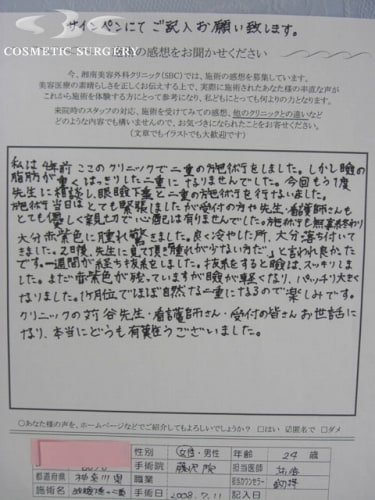 サインペンにてご記入お願い致します。
COSMETIC SURGERY
の感想をお聞かせください
今、湘南美容外科クリニック(SBC)では、施術の感想を募集しています。
美容医療の素晴らしさを正しくお伝えする上で、実際に施術されたあなた様の率直な声が
これから施術を体験する方にとって参考になり、私どもにとっても何よりの力となります。
来院時のスタッフの対応、施術を受けてみての感想、他のクリニックとの違いなど
どのような内容でも構いませんので、お気づきになられたことをお寄せください。
(文章でもイラストでも大歓迎です)
私は4年前ここのクリニックで二重の施術をしました。しかし瞼の
脂肪が重く、はっきりした二重になりませんでした。今回もう1度
先生に相談し、眼瞼下垂と二重の施術を行ないました。
施術当日はとても緊張しましたが受付の方や先生・看護師さんも
とても優しく親切で心配は有りませんでした。施術も無事終わり
大分赤紫色に腫れ驚きました。良く冷やした所、大分落ち付いて
きました。2日後、先生に見て頂き「腫れが少ない方だ」と言われ良かった
です。一週間が経ち抜糸をしました。抜糸をすると瞼は、スッキリしま
した。まだ赤紫色が残っていますが瞼が軽くなり、パッチリ大きく
なりました。1ヶ月位でほぼ自然な二重になるので楽しみです。
クリニックの苅谷先生・看護師さん・受付の皆さんお世話に
なり、本当にどうも有難うございました。
○あなた様の声を、ホームページなどでご紹介してもよろしいでしょうか? □はい ☑匿名で □ダメ
性別 女性・男性 年齢 24歳
都道府県 神奈川県 手術院 藤沢院 担当医師
職業 担当カウンセラー
施術名 手術日 2008.7.11 記入日